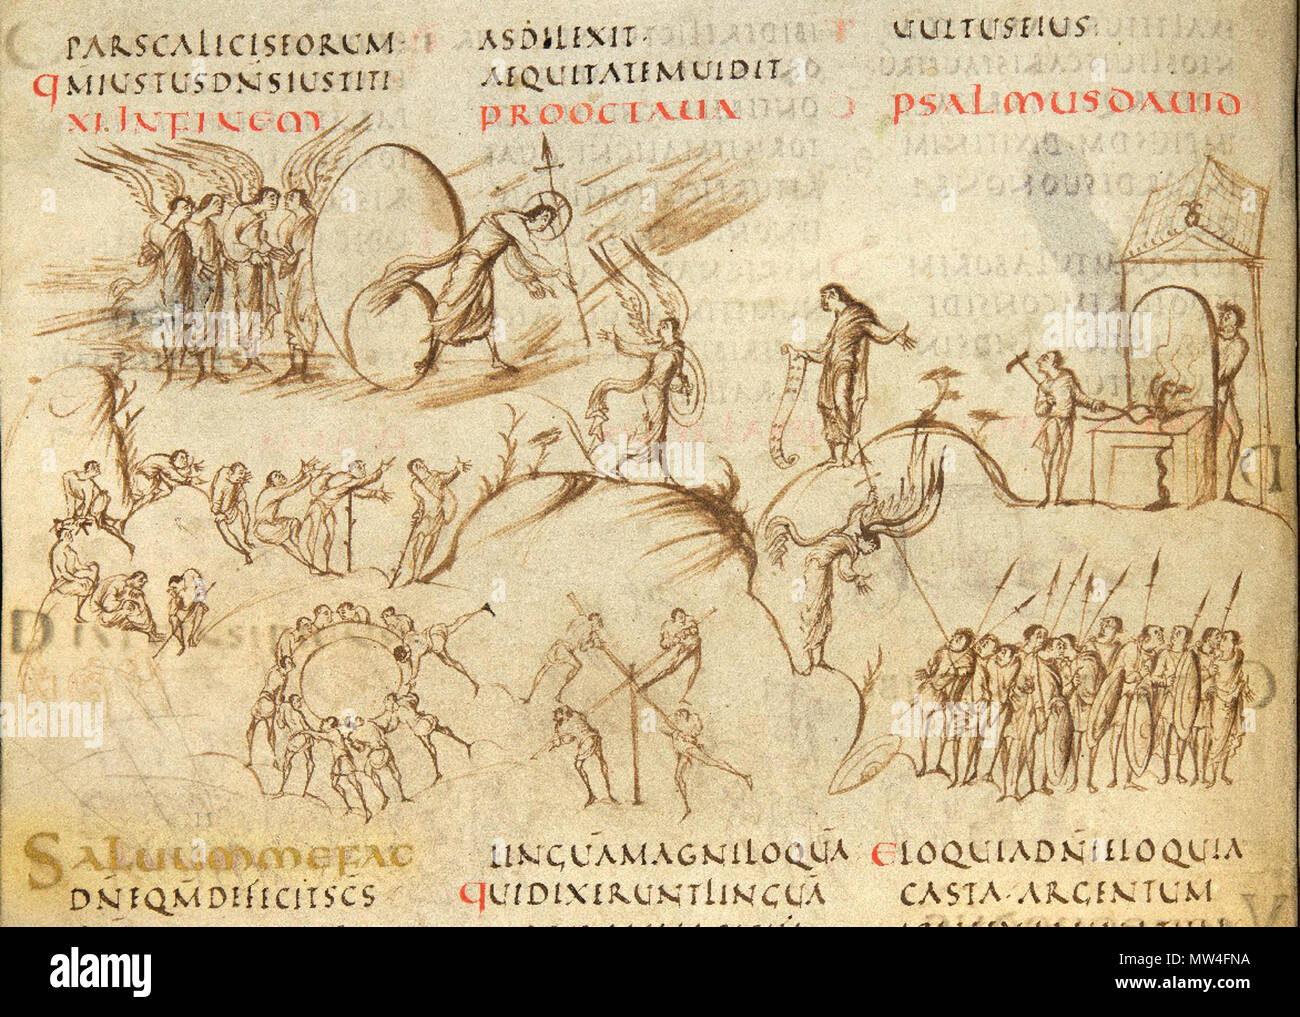 PARSCALICISEORUM
QMIUSTUSDN̄SIUSTITI
XI. INFINEM
ASDILEXIT
AEQUITATEMUIDIT
PROOCTAUA
UULTUSEIUS
PSALMUSDAUID
SALUUMMEFAC
DN̄EQM̄DEFECITSC̄S
LINGUĀMAGNILOQUĀ
QUIDIXERUNTLINGUĀ
ELOQUIADN̄IELOQUIA
CASTA·ARGENTUM
alamy
Image ID: MW4FNA
www.alamy.com